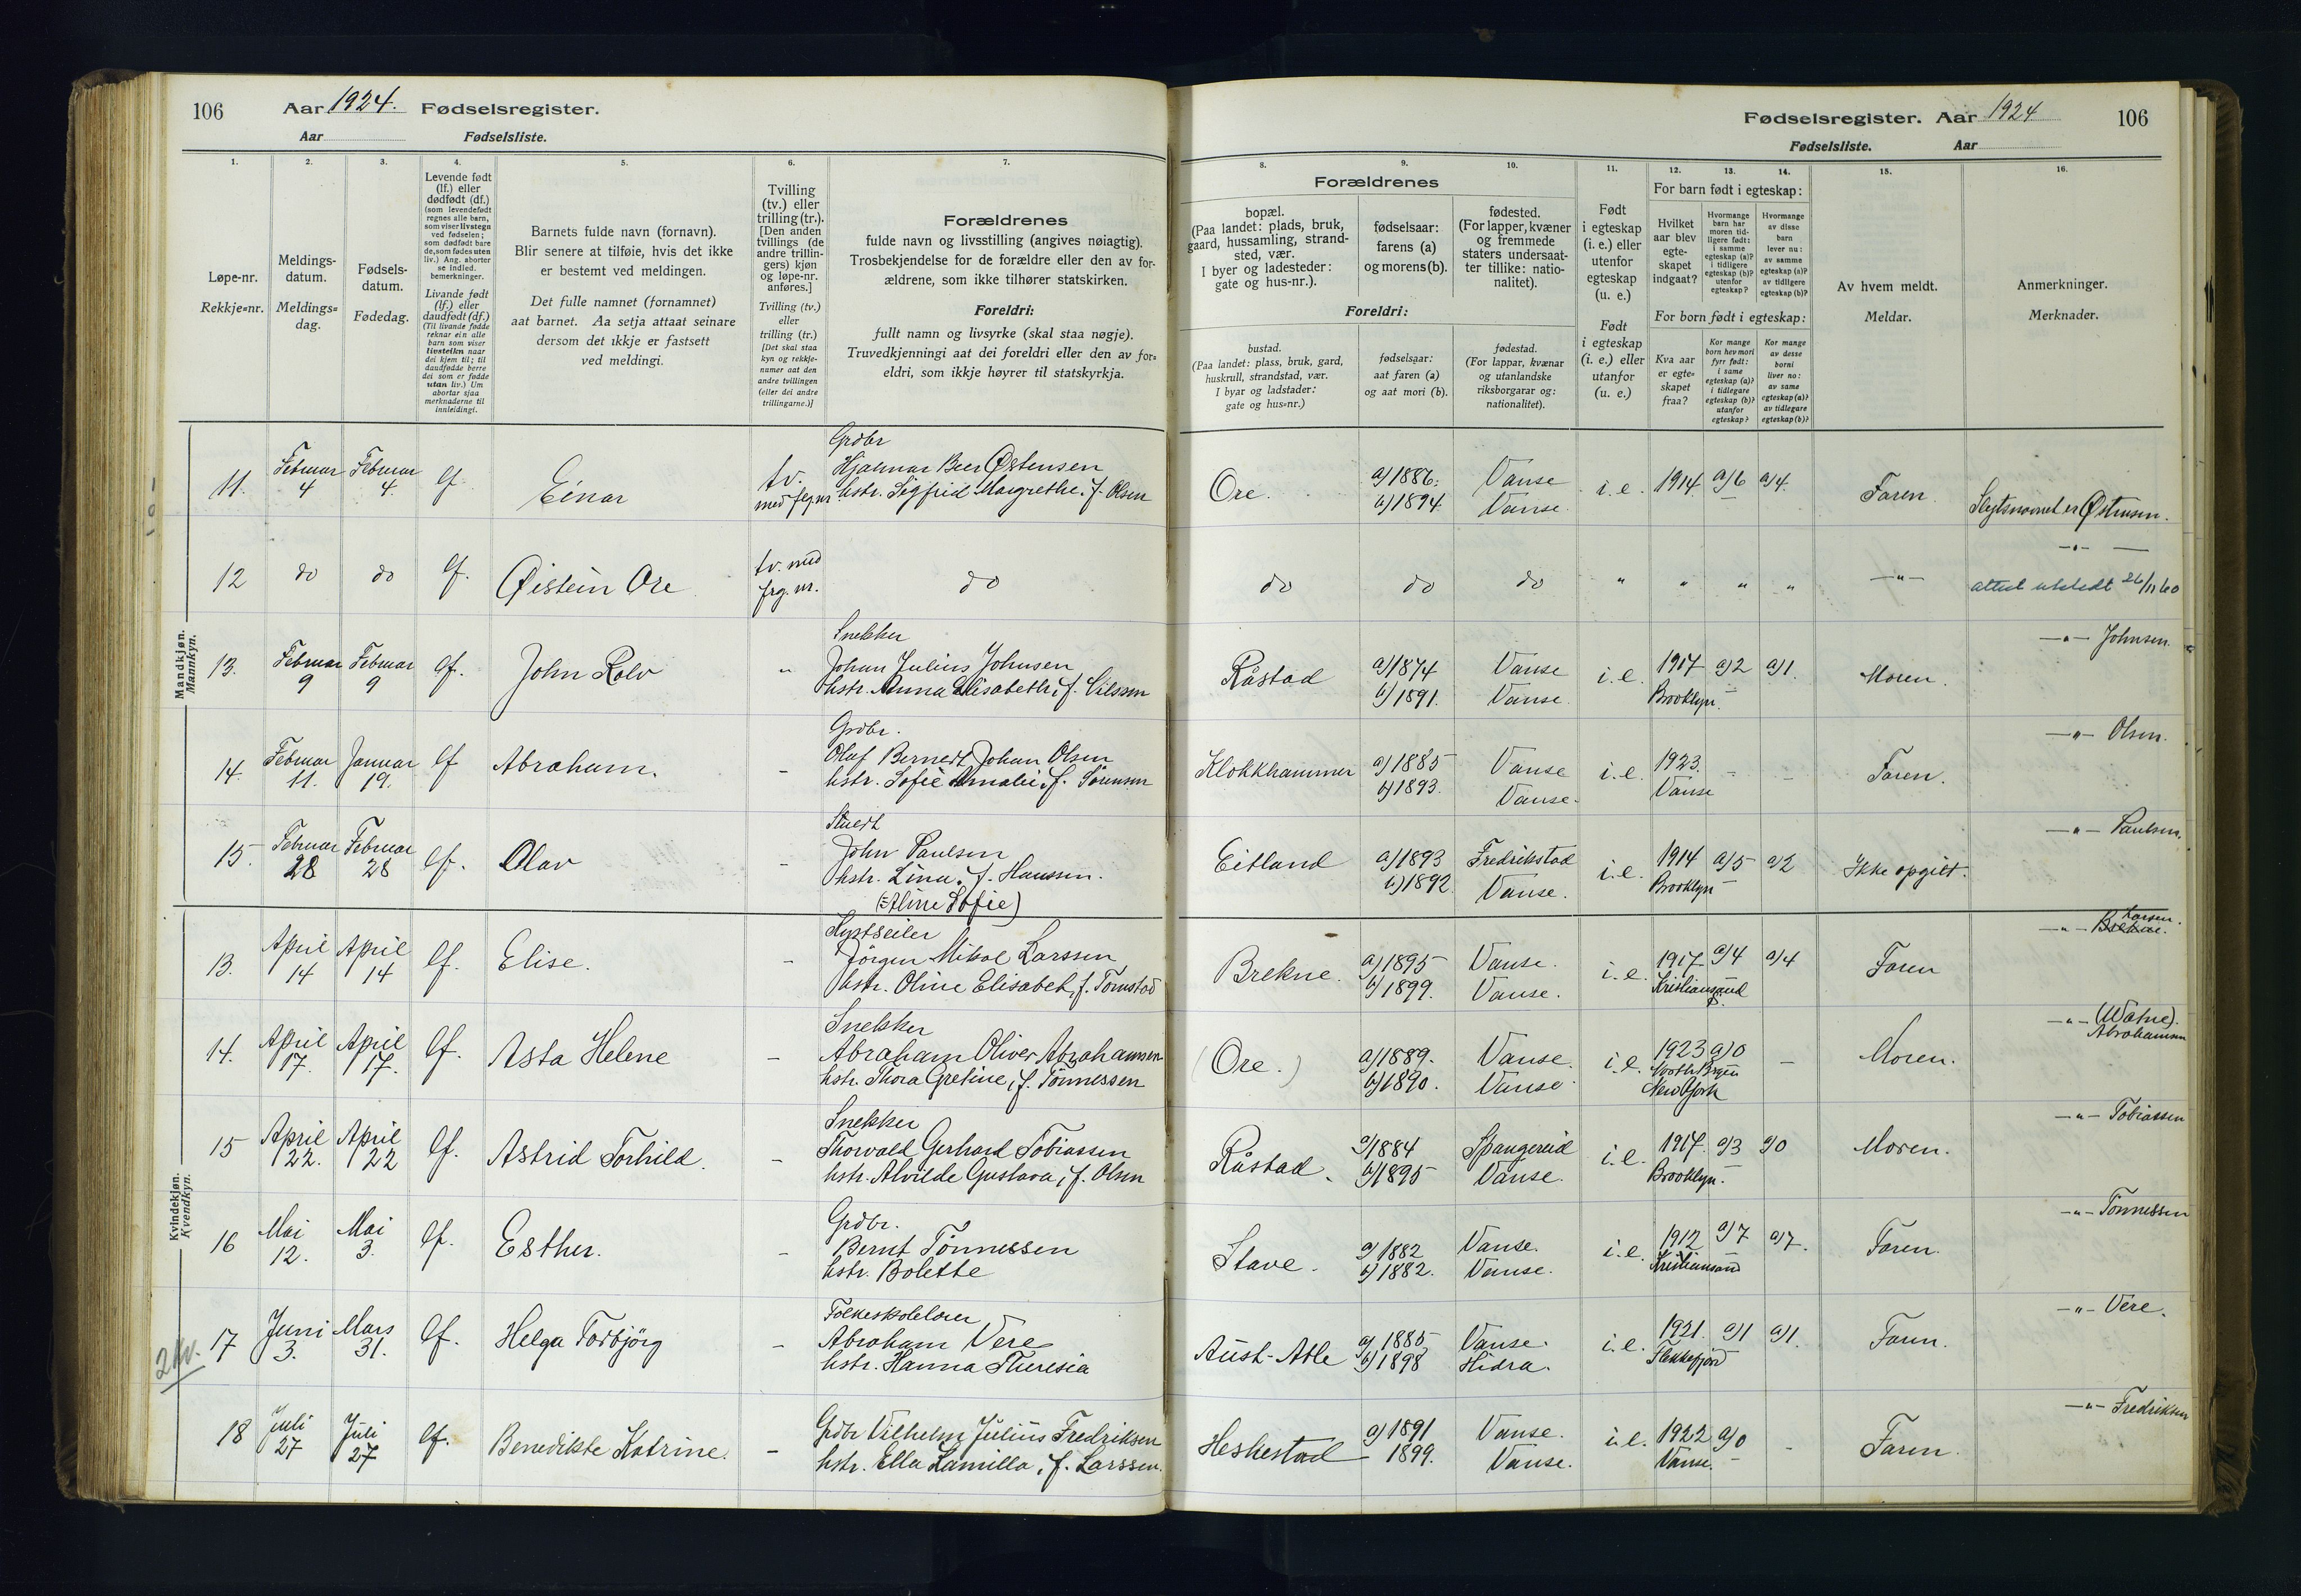 106 Aar 1924. Fødselsregister.
Aar Fødselsliste.
1. 2. 3. 4. 5. 6. 7.
Løpe-nr.
Rekkje=nr.
Meldings-
datum.
Meldings=
dag.
Fødsels-
datum.
Fødedag.
Levende født
(lf.) eller
dødfødt (df.)
(som levendefødt
regnes alle barn,
som viser livstegn
ved fødselen;
som dødfødt bare
de, som fødes uten
liv.) Ang. aborter
se indled.
bemerkninger.
Livande født
(lf.) eller
daudfødt (df.)
(Til livande fødde
reknar ein alle
barn som viser
livsteikn naar
dei kjem til; til
daudfødde berre
dei som er fødde
utan liv.) Um
abortar sjaa
merknaderne til
innleidingi.
Barnets fulde navn (fornavn).
Blir senere at tilføie, hvis det ikke
er bestemt ved meldingen.
Det fulle namnet (fornamnet)
aat barnet. Aa setja attaat seinare
dersom det ikkje er fastsett
ved meldingi.
Tvilling
(tv.) eller
trilling (tr.).
[Den anden
tvillings (de
andre trillin-
gers) kjøn
og løpe-nr.
anføres.]
Tvilling (tv.)
eller
trilling (tr.)
[Det skal staa
kyn og rekkje-
numer aat den
andre tvillingen
(eller dei andre
trillingarne.)]
Forældrenes
fulde navn og livsstilling (angives nøiagtig).
Trosbekjendelse for de forældre eller den av for-
ældrene, som ikke tilhører statskirken.
Foreldri:
fullt namn og livsyrke (skal staa nøgje).
Truvedkjenningi aat dei foreldri eller den av for=
eldri, som ikkje høyrer til statskyrkja.
Mandkjøn.
Mannkyn.
11. Februar 4 Februar 4. lf Einar tv. med flg nr
Grdbr
Hjalmar Beer Østensen
hstr. Sigfrid Margrethe. f. Olsen
12 do do lf. Øistein Ore tv. med frg. nr. do
13. Februar 9 Februar 9 lf. John Rolv "
Snekker
Johan Julius Johnsen
hstr. Anna Elisabeth, f. Nilssen
14. Februar 11. Januar 19. lf Abraham. -
Grdbr.
Oluf Bernedt Johan Olsen
hstr. Sofie Amalie, f. Sørensen
15. Februar 28 Februar 28 lf. Olav -
Stuert
John Paulsen
hstr. Lina, f. Hanssen.
(=Aline Sofie)
Kvindekjøn.
Kvendkyn.
13. April 14 April 14 lf. Elise. -
Kystseiler
Jörgen Mikal Larssen
hstr. Oline Elisabet, f. Tomstad
14. April 17. April 17. lf. Asta Helene -
Snekker
Abraham Oliver Abrahamsen
hstr. Thora Gretine, f. Tönnessen
15 April 22. April 22 lf. Astrid Torhild. -
Snekker
Thorvald Gerhard Tobiassen
hstr. Alvilde Gustava, f. Olsen
16 Mai 12. Mai 3. lf. Esther. -
Grdbr.
Bernt Tönnessen
hstr. Bolette
2 kv.
17 Juni 3. Mars 31. lf. Helga Torbjörg -
Folkeskolelærer
Abraham Vere
hstr. Hanna Theresia
18 Juli 27 Juli 27 lf. Benedikte Katrine. -
Grdbr Vilhelm Julius Fredriksen
hstr. Ella Kamilla, f. Larssen.
Fødselsregister. Aar 1924 106
Fødselsliste. Aar
8. 9. 10. 11. 12. 13. 14. 15. 16.
Forældrenes
bopæl.
(Paa landet: plads, bruk,
gaard, hussamling, strand-
sted, vær.
I byer og ladesteder:
gate og hus-nr.).
fødselsaar:
farens (a)
og morens (b).
fødested.
(For lapper, kvæner
og fremmede
staters undersaat-
ter tillike: natio-
nalitet).
Foreldri:
bustad.
(Paa landet: plass, bruk, gard,
huskrull, strandstad, vær.
I byar og ladstader:
gate og hus=nr.)
fødselsaar:
aat faren (a)
og aat mori (b).
fødestad.
(For lappar, kvænar
og utanlandske
riksborgarar og:
nationalitet).
Født
i egteskap
(i. e.) eller
utenfor
egteskap
(u. e.)
Født
i egteskap
(i. e.) eller
utanfor
(u. e.)
For barn født i egteskap:
Hvilket
aar blev
egte-
skapet
indgaat?
Hvormange
barn har
moren tid-
ligere født:
i samme
egteskap (a)?
i tidligere
egteskap (b)?
utenfor
egteskap?
Hvormange
av disse
barn
lever nu:
av samme
egteskap (a)?
av tidligere
egteskap (b)?
For born født i egteskap:
Kva aar
er egte-
skapet
fraa?
Kor mange
born hev mori
fyrr født:
i same
egteskap (a)?
i tidlegare
egteskap (b)?
utanfor
egteskap?
Kor mange
av desse
borni
liver no:
av same
egteskap (a)?
av tidlegare
egteskap (b)?
Av hvem meldt.
Meldar.
Anmerkninger.
Merknader.
Ore. a) 1886. b) 1894. Vanse Vanse. i. e. 1914 a) 6 a) 4. Faren Slegtsnavnet er Østensen.
do do do " " " " —"— —"—
attest utstedt 26/11 60
Råstad a) 1874 b) 1891. Vanse Vanse. i. e. 1917 Brooklyn. a) 2 a) 1. Moren. —"— Johnsen.
Klokkhammer a) 1885 b) 1893. Vanse Vanse. i. e. 1923. Vanse - - Faren. —"— Olsen.
Eitland a) 1893 b) 1892. Fredrikstad Vanse. i. e. 1914 Brooklyn a) 5 a) 2 Ikke opgitt. —"— Paulsen.
Brekne. a) 1895 b) 1899. Vanse. Vanse. i. e. 1917. Kristiansand S. a) 4 a) 4 Faren —"— Brekne. Larsen.
(Ore.) a) 1889. b) 1890. Vanse. Vanse. i. e. 1923 New York a) 0 - Moren. —"— (Watne). Abrahamsen
Råstad. a) 1884 b) 1895 Spangereid Vanse. i. e. 1917. Brooklyn. a) 3 a) 0 Moren. —"— Tobiassen
Stave. a) 1882 b) 1882. Vanse. Vanse. i. e. 1912 Kristiansand a) 7 a) 7. Faren. —"— Tönnessen
Aust-Atle a) 1885 b) 1898 Vanse. Hidra. i. e. 1921. Flekkefjord a) 1 a) 1. Faren. —"— Vere.
Heskestad a) 1891 1899. Vanse. Vanse. i. e. 1922 Vanse. a) 0 - Faren. —"— Fredriksen